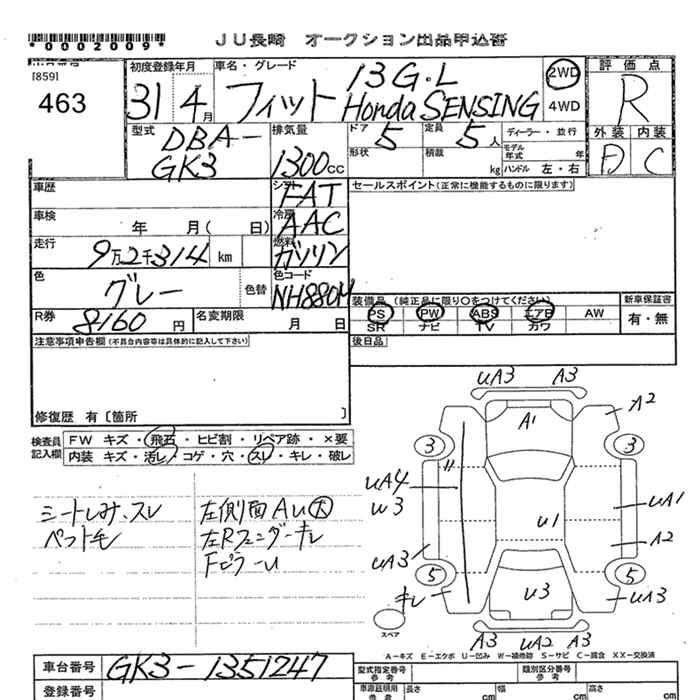 *0002009*
JU長崎 オークション出品申込書
[859]
463
初度登録年月
31 4月
車名・グレード
フィット 13G・L Honda SENSING
2WD
4WD
評価点
R
外装 内装
D C
型式
DBA-GK3
排気量
1300cc
ドア 5
定員 5人
ディーラー・並行
形状
積載 kg
モデル年式 年
ハンドル 左・右
車歴
シフト
FAT
セールスポイント(正常に機能するものに限ります)
車検 年 月( 日)
冷房
AAC
走行
9万2千314 km
燃料
ガソリン
色
グレー
色替
色コード
NH880M
装備品 (純正品に限り〇をつけてください)
新車保証書
PS PW ABS エアB AW
有・無
SR ナビ TV カワ
R券
8160円
名変期限 月 日
後日品
注意事項申告欄(不具合内容等は具体的に記入して下さい)
修復歴 有[箇所 ]
検査員記入欄
FW キズ・飛石・ヒビ割・リペア跡・×要
内装 キズ・汚レ・コゲ・穴・スレ・キレ・破レ
シートしみ、スレ
ペット毛
左側面AU大
左Rフェンダーキレ
FピラーU
UA3 A3
A1
A2
3 3
UA4
W3
UA1
U1
A2
UA3
5 5
キレ
U3
UA3
スペア
A3 UA2 A3
A-キズ E-エクボ U-凹み W-補修跡 S-サビ C-腐食 XX-交換済
車台番号 GK3-1351247
登録番号
型式指定番号 参考
類別区分番号 参考
車庫証明用 参考
長さ cm
幅 cm
高さ cm